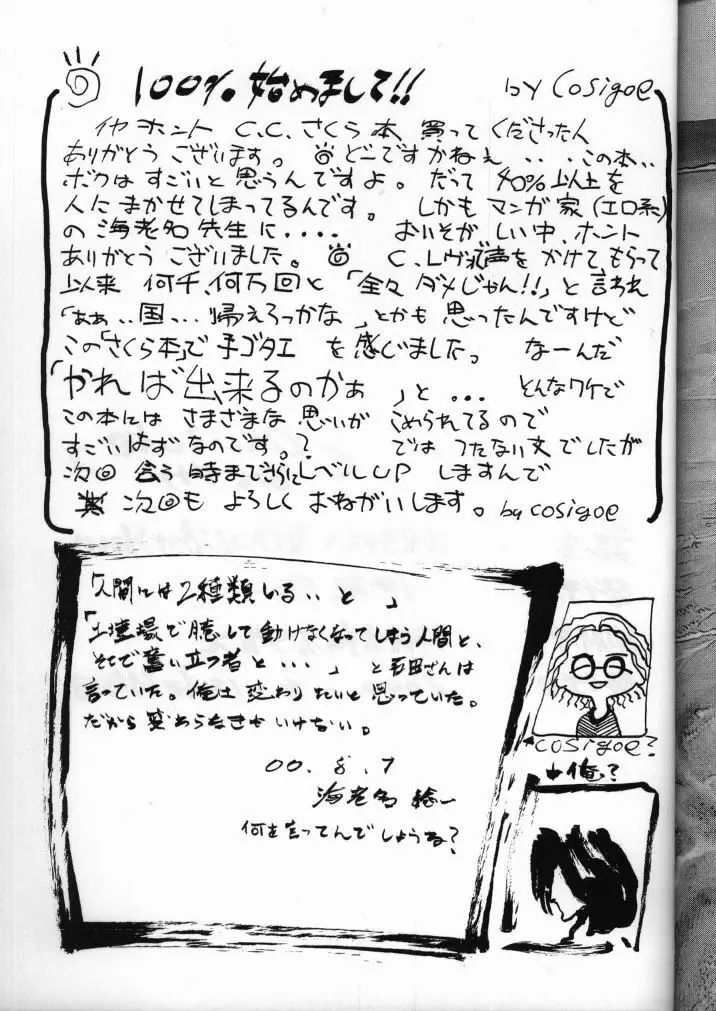 100%始めまして!! by Cosigoe
イヤ ホント C.C.さくら本、買ってくださった人
ありがとうございます。 どーですかねぇ...この本..
ボクはすごいと思うんですよ。だって 40%以上を
人にまかせてしまってるんです。しかもマンガ家(エロ系)
の海老名先生に.... おいそがしい中、ホント
ありがとうございました。 C.Lヴぃに声をかけてもらって
以来 何千、何万回と「全々ダメじゃん!!」と言われ
「ぁぁ..国...帰えろっかな」とかも思ったんですけど
この「さくら本」で手ゴタエを感じました。なーんだ
「かれば出来るのかぁ」と... とんなワケで
この本にはさまざまな思いがこめられてるので
すごいはずなのです。? では つたない文でしたが
次回会う時までさらにレベルUPしますんで
次回もよろしくおねがいします。by cosigoe
「人間には2種類いる..と」
「土壇場で臆して動けなくなってしまう人間と、
そこで奮い立つ者と...」と さんは
言っていた。俺は変わりたいと思っていた。
だから変わらなきゃいけない。
00.8.7
海老名 一
何を言ってんでしょうね?
cosigoe?
俺?